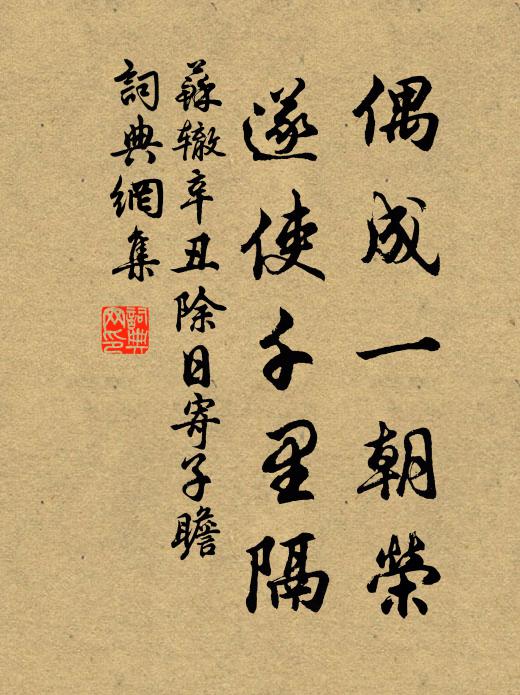 偶成一朝榮
遂使千里隔
蘇轍辛丑除日寄子瞻
詞典網集
詞典
網印